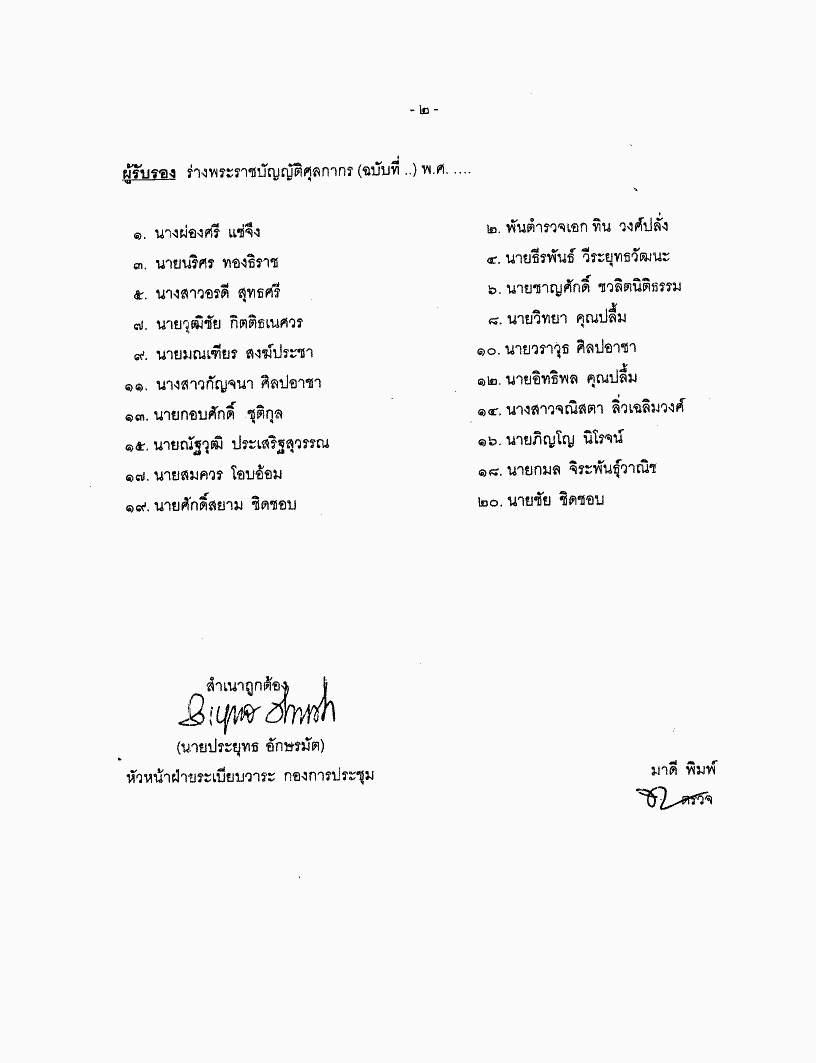 - ๒ -
ผู้รับรอง ร่างพระราชบัญญัติศุลกากร (ฉบับที่ ..) พ.ศ. ....
๑. นางผ่องศรี แซ่จึง
๒. พันตำรวจเอก ทิน วงศ์ปลั่ง
๓. นายนริศร ทองธิราช
๔. นายธีรพันธ์ วีระยุทธวัฒนะ
๕. นางสาวอรดี สุทธศรี
๖. นายชาญศักดิ์ ชวลิตนิติธรรม
๗. นายวุฒิชัย กิตติธเนศวร
๘. นายวิทยา คุณปลื้ม
๙. นายมณเฑียร สงฆ์ประชา
๑๐. นายวราวุธ ศิลปอาชา
๑๑. นางสาวกัญจนา ศิลปอาชา
๑๒. นายอิทธิพล คุณปลื้ม
๑๓. นายกอบศักดิ์ ชุติกุล
๑๔. นางสาวจณิสตา ลิ่วเฉลิมวงศ์
๑๕. นายณัฐวุฒิ ประเสริฐสุวรรณ
๑๖. นายภิญโญ นิโรจน์
๑๗. นายสมควร โอบอ้อม
๑๘. นายกมล จิระพันธุ์วาณิช
๑๙. นายศักดิ์สยาม ชิดชอบ
๒๐. นายชัย ชิดชอบ
สำเนาถูกต้อง
(นายประยุทธ อักษรมัต)
หัวหน้าฝ่ายระเบียบวาระ กองการประชุม
มาดี พิมพ์
ตรวจ